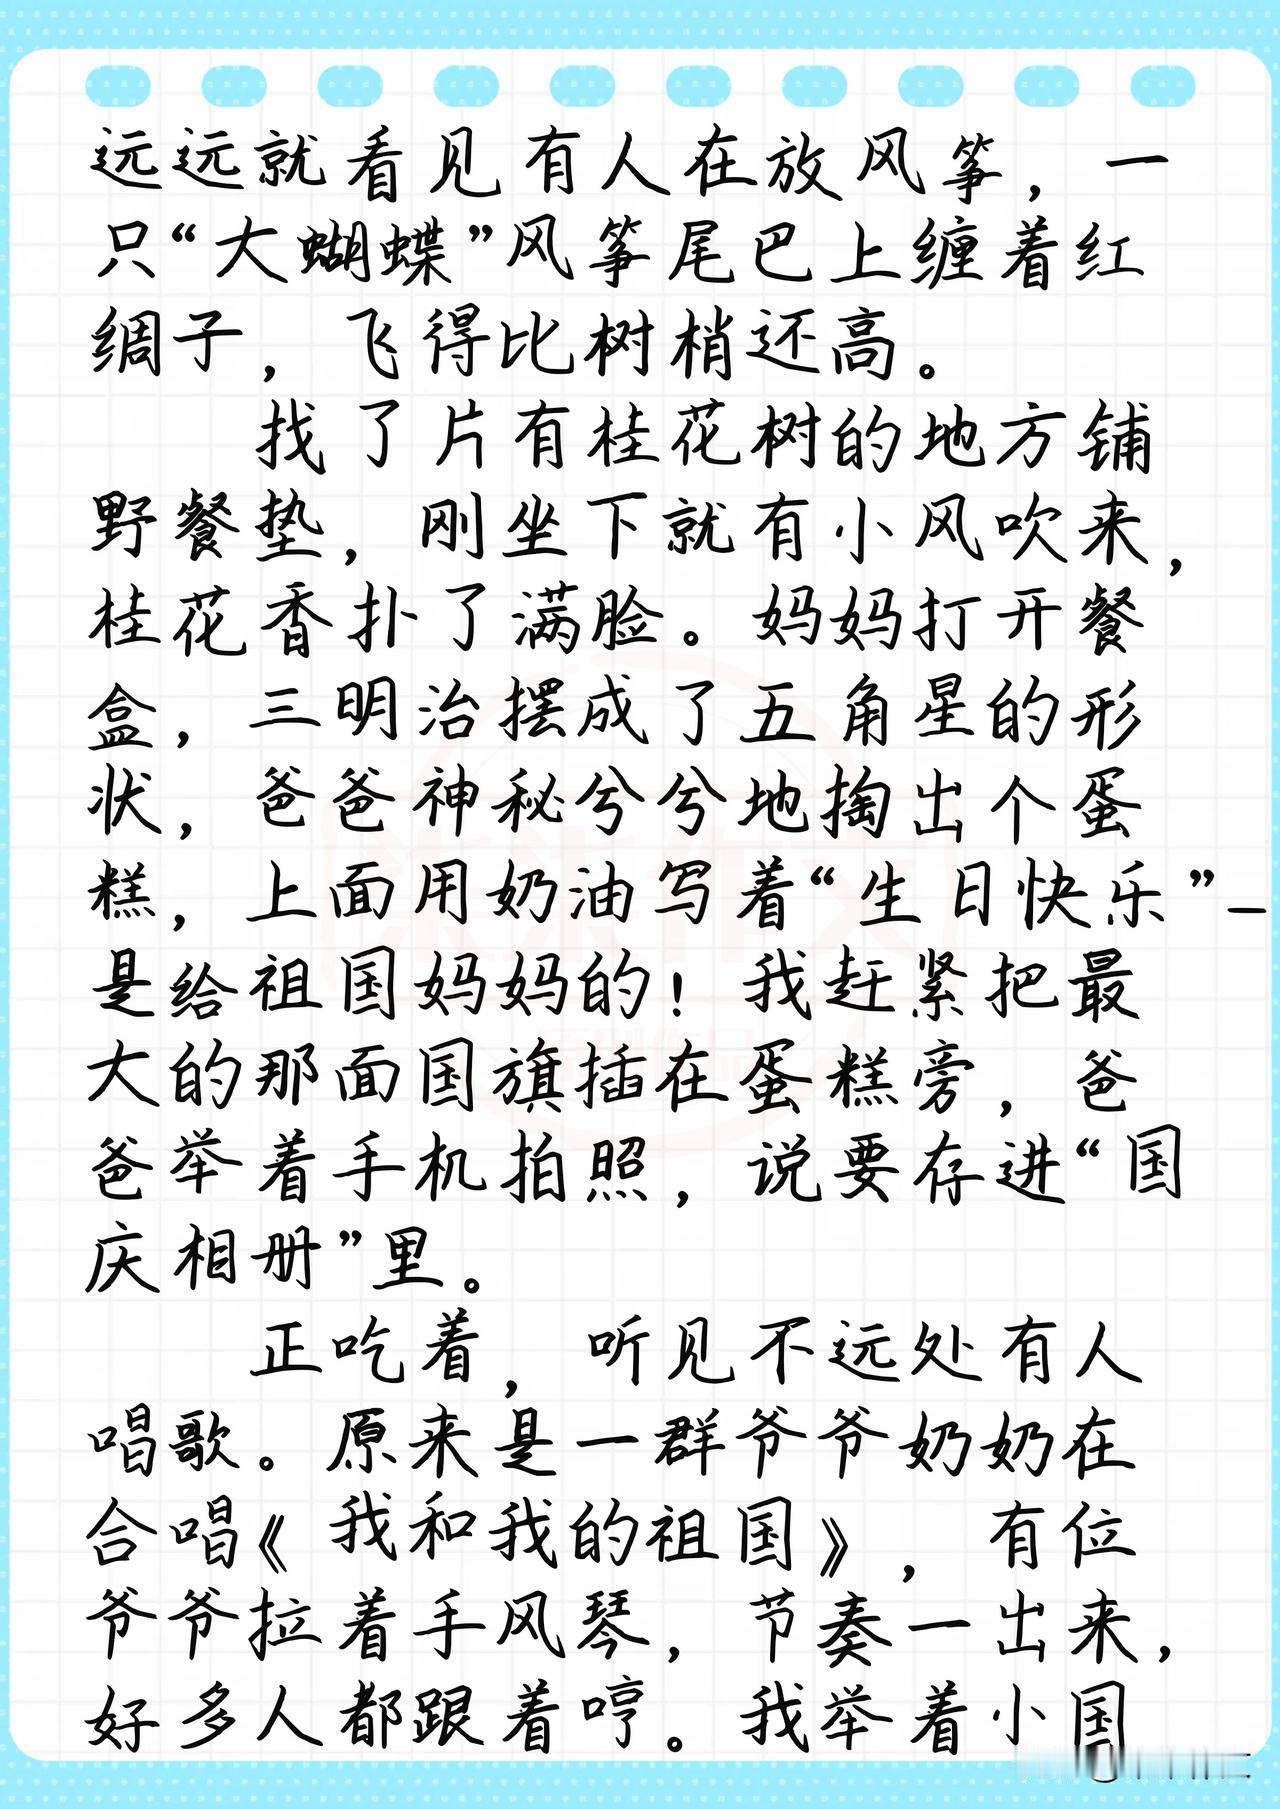 远远就看见有人在放风筝，一
只“大蝴蝶”风筝尾巴上缠着红
绸子，飞得比树梢还高。
找了片有桂花树的地方铺
野餐垫，刚坐下就有小风吹来，
桂花香扑了满脸。妈妈打开餐
盒，三明治摆成了五角星的形
状，爸爸神秘兮兮地掏出个蛋
糕，上面用奶油写着“生日快乐”—
是给祖国妈妈的！我赶紧把最
大的那面国旗插在蛋糕旁，爸
爸举着手机拍照，说要存进“国
庆相册”里。
正吃着，听见不远处有人
唱歌。原来是一群爷爷奶奶在
合唱《我和我的祖国》，有位
爷爷拉着手风琴，节奏一出来，
好多人都跟着哼。我举着小国